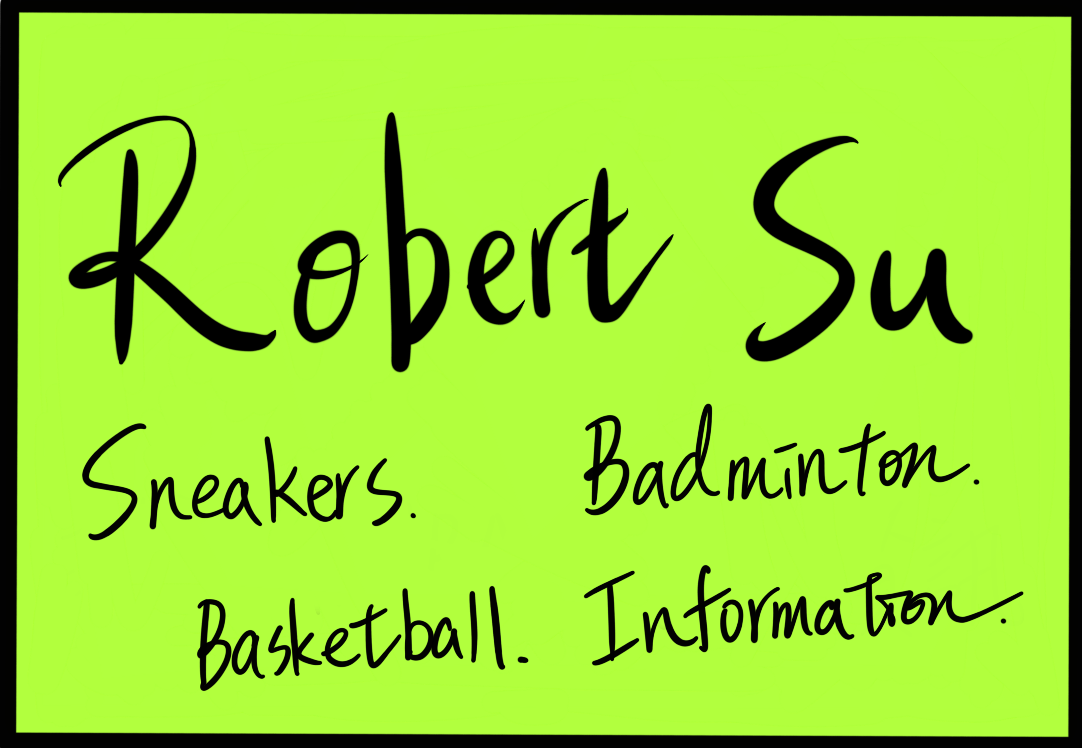 Robert Su
Sneakers. Badminton.
Basketball. Information.